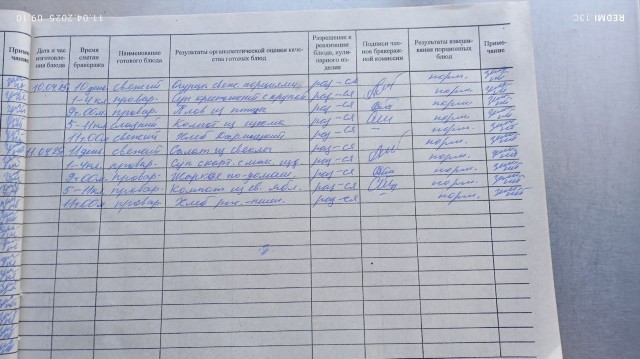 11.04.2025 09:10
REDMI 13C
Приме-чание
Дата и час изготовления блюда
Время снятия бракеража
Наименование готового блюда
Результаты органолептической оценки качества готовых блюд
Разрешение к реализации блюда, кулинарного изделия
Подписи членов бракеражной комиссии
Результаты взвешивания порционных блюд
Примечание
10.04.25 10 день свежий Огурцы свеж. порциями раз-ся норм.
1-4кл провар. Суп крестьянский с крупой раз-ся норм.
9ч00м провар. Плов из птицы раз-ся норм.
5-11кл сладкий Компот из изюма раз-ся норм.
11ч00м свежий Хлеб раз-ся норм.
11.04.25 11 день свежий Салат из свеклы раз-ся норм.
1-4кл провар. Суп карт. с мак. изд раз-ся норм.
9ч00м провар. Жаркое по-домаш. раз-ся норм.
5-11кл провар. Компот из св. ябл. раз-ся норм.
11ч00м провар Хлеб рж.-пшен. раз-ся норм.